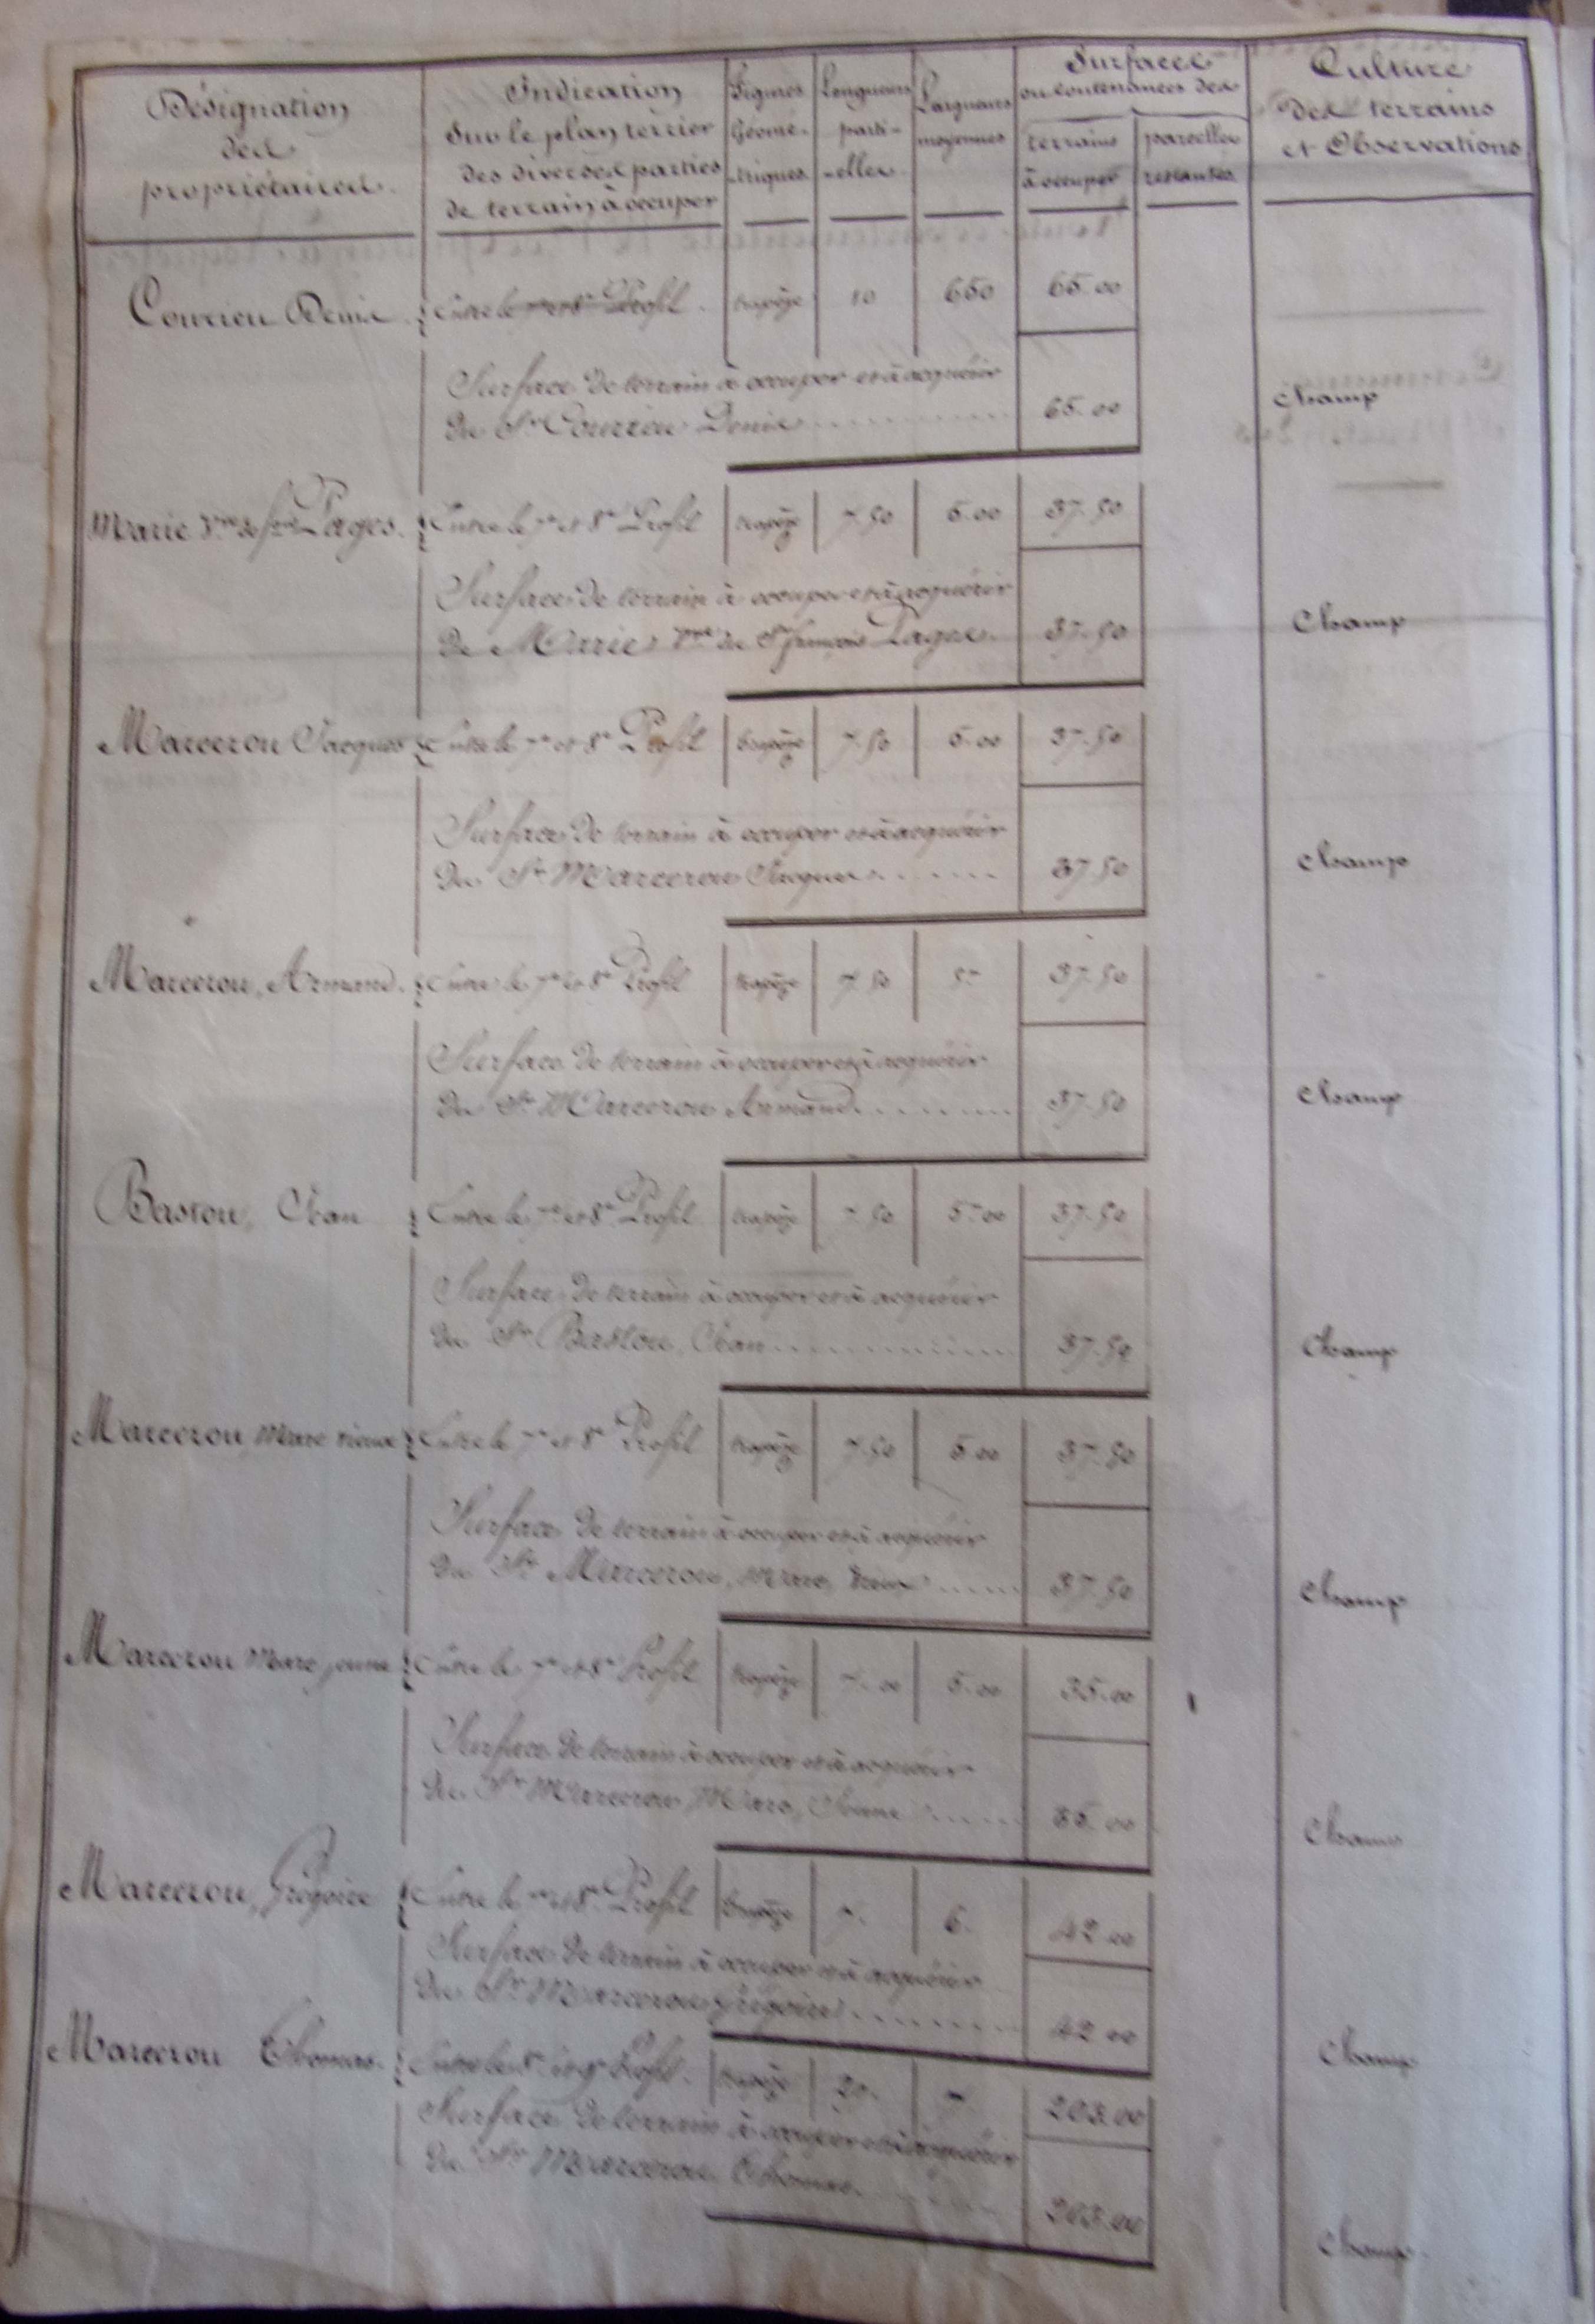 Désignation
des
propriétaires.
Indication
Sur le plan terrier
des diverses parties
de terrain à occuper
Figures
Géomé-
-triques.
Longueurs
parti-
-elles.
Largeurs
moyennes
Surfaces
ou contenances des
terrains
à occuper
parcelles
restantes
Culture
des terrains
et Observations
Courieu Denis Entre le 7e et 8e Profil trapèze 10 650 65.00
Surface de terrain à occuper et à acquérir
du Sr Courieu Denis 65.00 Champ
Marie Vve de Pages. Entre le 7e et 8e Profil trapèze 7.50 5.00 37.50
Surface de terrain à occuper et à acquérir
de Marie Vve de Sr françois Pages. 37.50 Champ
Marcerou Jacques Entre le 7e et 8e Profil trapèze 7.50 5.00 37.50
Surface de terrain à occuper et à acquérir
du Sr Marcerou Jacques 37.50 Champ
Marcerou, Armand. Entre le 7e et 8e Profil trapèze 7.50 5." 37.50
Surface de terrain à occuper et à acquérir
du Sr Marcerou Armand 37.50 Champ
Bastou, Jean Entre le 7e et 8e Profil trapèze 7.50 5.00 37.50
Surface de terrain à occuper et à acquérir
du Sr Bastou, Jean 37.50 Champ
Marcerou, Marc vieux Entre le 7e et 8e Profil trapèze 7.50 5.00 37.50
Surface de terrain à occuper et à acquérir
du Sr Marcerou, Marc, vieux 37.50 Champ
Marcerou Marc jeune Entre le 7e et 8e Profil trapèze 7.00 5.00 35.00
Surface de terrain à occuper et à acquérir
du Sr Marcerou, Marc, Jeune 35.00 Champ
Marcerou, Grégoire Entre le 7e et 8e Profil trapèze 7. 6. 42.00
Surface de terrain à occuper et à acquérir
du Sr Marcerou Grégoire 42.00 Champ
Marcerou Thomas. Entre le 8e et 9e Profil. trapèze 203.00
Surface de terrain à occuper et à acquérir
du Sr Marcerou Thomas. 203.00 Champ